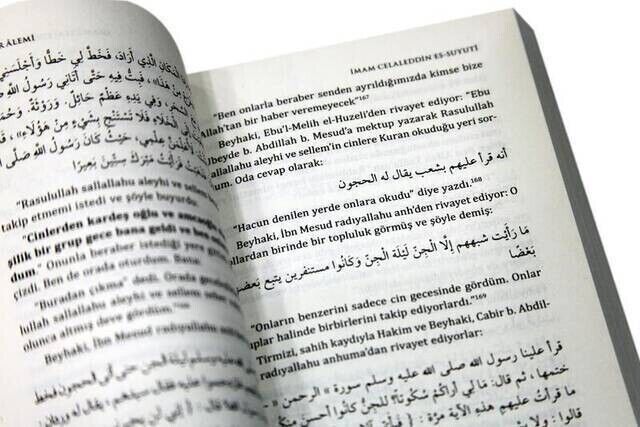 R ÂLEMİ
الْمَكَانِ الَّذِي أَرَادَ، فَخَطَّ لِي خَطًّا وَأَجْلَسَنِي
مِنْ هَذَا»، فَبِتُّ فِيهِ حَتَّى أَتَانِي رَسُولُ اللَّهِ
وَفِي يَدِهِ عَظْمٌ حَائِلٌ، وَرَوْثَةٌ وَحُمَمَةٌ
بِشَيْءٍ مِنْ هَؤُلَاءِ»،
حَيْثُ كَانَ رَسُولُ اللَّهِ صَلَّى
فَرَأَيْتُ مَبْرَكَ سِتِّينَ بَعِيرًا
"Rasulullah sallallahu aleyhi ve sellem
takip etmemi istedi ve şöyle buyurdu.
"Cinlerden kardeş oğlu ve amcaoğlu
şilik bir grup gece bana geldi ve ben
dum." Onunla beraber istediği yere
çizdi. Ben de orada oturdum. Bana
"Buradan çıkma" dedi. Orada
lullah sallallahu aleyhi ve sellem
olunca altmış deve gördüm"
Beyhaki, İbn Mesud radıyallahu anh
İMAM CELALEDDİN ES-SUYUTÎ
"Ben onlarla beraber senden ayrıldığımızda kimse bize
Allah'tan bir haber veremeyecek"167
Beyhaki, Ebu'l-Melih el-Huzeli'den rivayet ediyor: "Ebu
Ubeyde b. Abdillah b. Mesud'a mektup yazarak Rasulullah
sallallahu aleyhi ve sellem'in cinlere Kuran okuduğu yeri sor-
dum. Oda cevap olarak:
أنه قرأ عليهم بشعب يقال له الحجون
"Hacun denilen yerde onlara okudu" diye yazdı.168
Beyhaki, İbn Mesud radıyallahu anh'den rivayet ediyor: O
yollardan birinde bir topluluk görmüş ve şöyle demiş:
مَا رَأَيْتُ شبههم إِلَّا الْجِنّ لَيْلَةَ الْجِنّ وَكَانُوا مستنفرين يتبع بَعضهم
بَعْضًا
"Onların benzerini sadece cin gecesinde gördüm. Onlar
gruplar halinde birbirlerini takip ediyorlardı."169
Tirmizi, sahih kaydıyla Hakim ve Beyhaki, Cabir b. Abdil-
radıyallahu anhuma'dan rivayet ediyorlar:
قرأ علينا رسول الله صلى الله عليه وسلم سورة «الرحمن»
ختمها، ثم قال: مَا لِي أَرَاكُمْ سُكُوتًا؟ لَلْجِنُّ كَانُوا أَحْسَنَ مِنْكُمْ
مَا قَرَأْتُ عَلَيْهِمْ هَذِهِ الْآيَةَ مَرَّةً